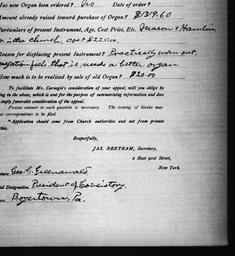 Has new Organ been ordered? No Date of order?
Amount already raised toward purchase of Organ? $1319.60
Particulars of present Instrument, Age, Cost Price, Etc. Mason & Hamlin
in the church, cost $22
Reason for displacing present Instrument? Practically worn out.
feels that it needs a better organ
How much is to be realized by sale of old Organ? $20.00
To facilitate Mr. Carnegie's consideration of your appeal, will you oblige by
in the above, which is sent for the purpose of summarising information and does
imply favorable consideration of the appeal.
Precise answer to each question is necessary. The issuing of blanks may
correspondence to be filed.
* Application should come from Church authorities and not from private
parties.
Respectfully,
JAS. BERTRAM, Secretary,
2 East 91st Street,
New York.
Geo. G. Greenawald
Official Designation. President of Consistory.
Boyertown, Pa.